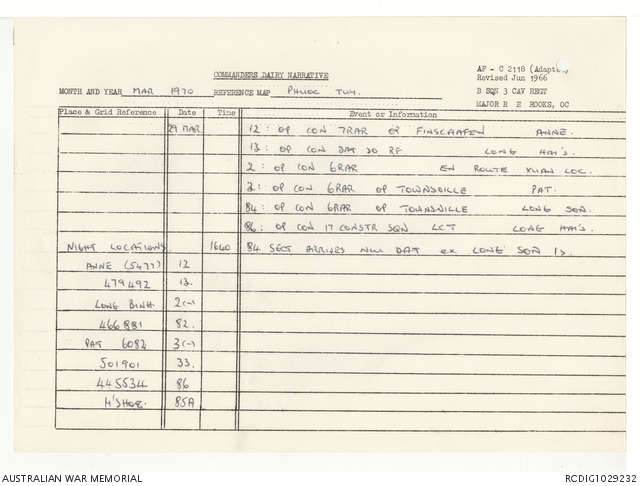 AF - C 2118 (Adapted)
Revised Jun 1966
COMMANDERS DAIRY NARRATIVE
MONTH AND YEAR MAR 1970 REFERENCE MAP PHUOC TUY. B SQN 3 CAV REGT
MAJOR R E ROOKS, OC
Place & Grid Reference Date Time Event or Information
29 MAR 12: OP CON 7RAR OP FINSCHAFEN ANNE.
13: OP CON DAT 30 RF LONG HAI'S.
2: OP CON 6RAR EN ROUTE XUAN LOC.
3: OP CON 6RAR OP TOWNSVILLE PAT.
84: OP CON 6RAR OP TOWNSVILLE LONG SON.
86: OP CON 17 CONSTR SQN LCT LONG HAI'S.
NIGHT LOCATIONS 1640 84 SECT ARRIVES NUI DAT ex LONG SON IS.
ANNE (5477) 12
479492 13.
LONG BINH. 2(-)
466881 82.
PAT 6082 3(-)
501901 33.
445534 86
85A
AUSTRALIAN WAR MEMORIAL RCDIG1029232